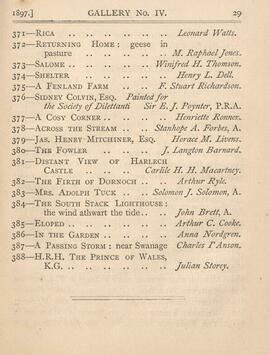 1897.] GALLERY No. IV. 29
371—Rica .. .. .. .. Leonard Watts.
372—Returning Home: geese in
pasture .. .. .. M. Raphael Jones.
373—Salome .. .. .. Winifred H. Thomson.
374—Shelter .. .. .. .. Henry L. Dell.
375—A Fenland Farm .. F. Stuart Richardson.
376—Sidney Colvin, Esq. Painted for
the Society of Dilettanti Sir E. J. Poynter, P.R.A.
377—A Cosy Corner .. .. Henriette Ronner.
378—Across the Stream .. Stanhope A. Forbes, A.
379—Jas. Henry Mitchiner, Esq. Horace M. Livens.
380—The Fowler .. .. J. Langton Barnard.
381—Distant View of Harlech
Castle .. .. Carlile H. H. Macartney.
382—The Firth of Dornoch .. Arthur Ryle.
383—Mrs. Adolph Tuck .. Solomon J. Solomon, A.
384—The South Stack Lighthouse:
the wind athwart the tide .. John Brett, A.
385—Eloped .. .. .. .. Arthur C. Cooke.
386—In the Garden .. .. Anna Nordgren.
387—A Passing Storm: near Swanage Charles I'Anson.
388—H.R.H. The Prince of Wales,
K.G. .. .. .. .. Julian Storey.